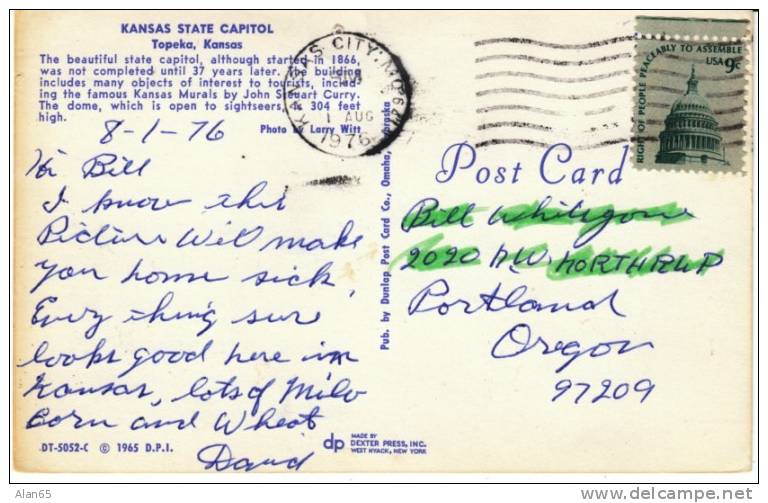 KANSAS STATE CAPITOL
Topeka, Kansas
The beautiful state capitol, although started in 1866,
was not completed until 37 years later. The building
includes many objects of interest to tourists, includ-
ing the famous Kansas Murals by John Steuart Curry.
The dome, which is open to sightseers, is 304 feet
high.
Photo by Larry Witt
8-1-76
Hi Bill
I know this
Picture Will make
you home sick,
Every thing sure
looks good here in
Kansas, lots of Milo
Corn and Wheat
David
DT-5052-C © 1965 D.P.I.
KANSAS CITY, MO
PM
1 AUG
1976
RIGHT OF PEOPLE PEACEABLY TO ASSEMBLE
USA 9c
Pub. by Dunlap Post Card Co., Omaha, Nebraska
Post Card
Bill
2020 N.W. NORTHRUP
Portland
Oregon
97209
dp MADE BY
DEXTER PRESS, INC.
WEST NYACK, NEW YORK
Alan65
http://www.delcampe.net